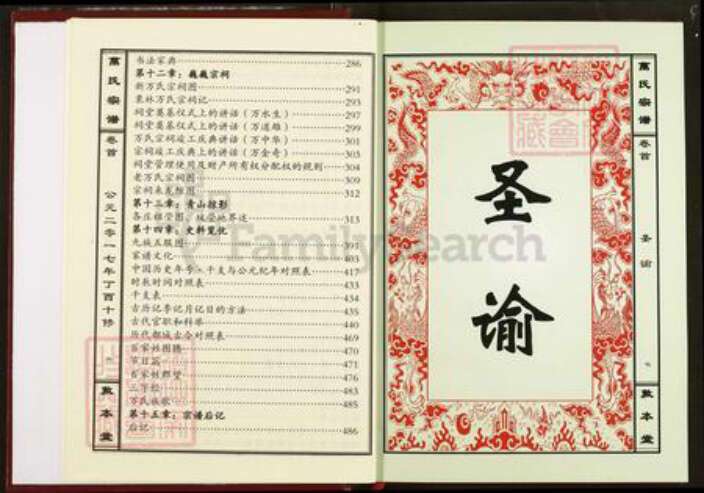 萬氏宗谱
卷首
公元二零一七年丁酉十修
敦本堂
书法家典 286
第十二章：巍巍宗祠
新万氏宗祠图 291
栗林万氏宗祠记 293
祠堂奠基仪式上的讲话（万水生） 297
祠堂奠基仪式上的讲话（万道雄） 299
万氏宗祠竣工庆典讲话（万中华） 301
宗祠竣工庆典上的讲话（万金奇） 303
祠堂管理使用及财产所有权分配权的规则 304
老万氏宗祠图 310
宗祠来龙脉图 312
第十三章：青山掠影
各庄祖茔图、坟茔地界述 313
第十四章：史料览忆
九族五服图 391
家谱文化 403
中国历史年季、干支与公元纪年对照表 417
时辰时间对照表 433
干支表 434
古历记季记月记日的方法 435
古代官职和科举 440
历代都城古今对照表 469
百家姓图腾 470
节日篇 471
百家姓郡望 476
三字经 483
万氏族歌 485
第十五章：宗谱后记
后记 486
FamilySearch
圣谕
萬氏宗谱
卷首
圣谕
敦本堂